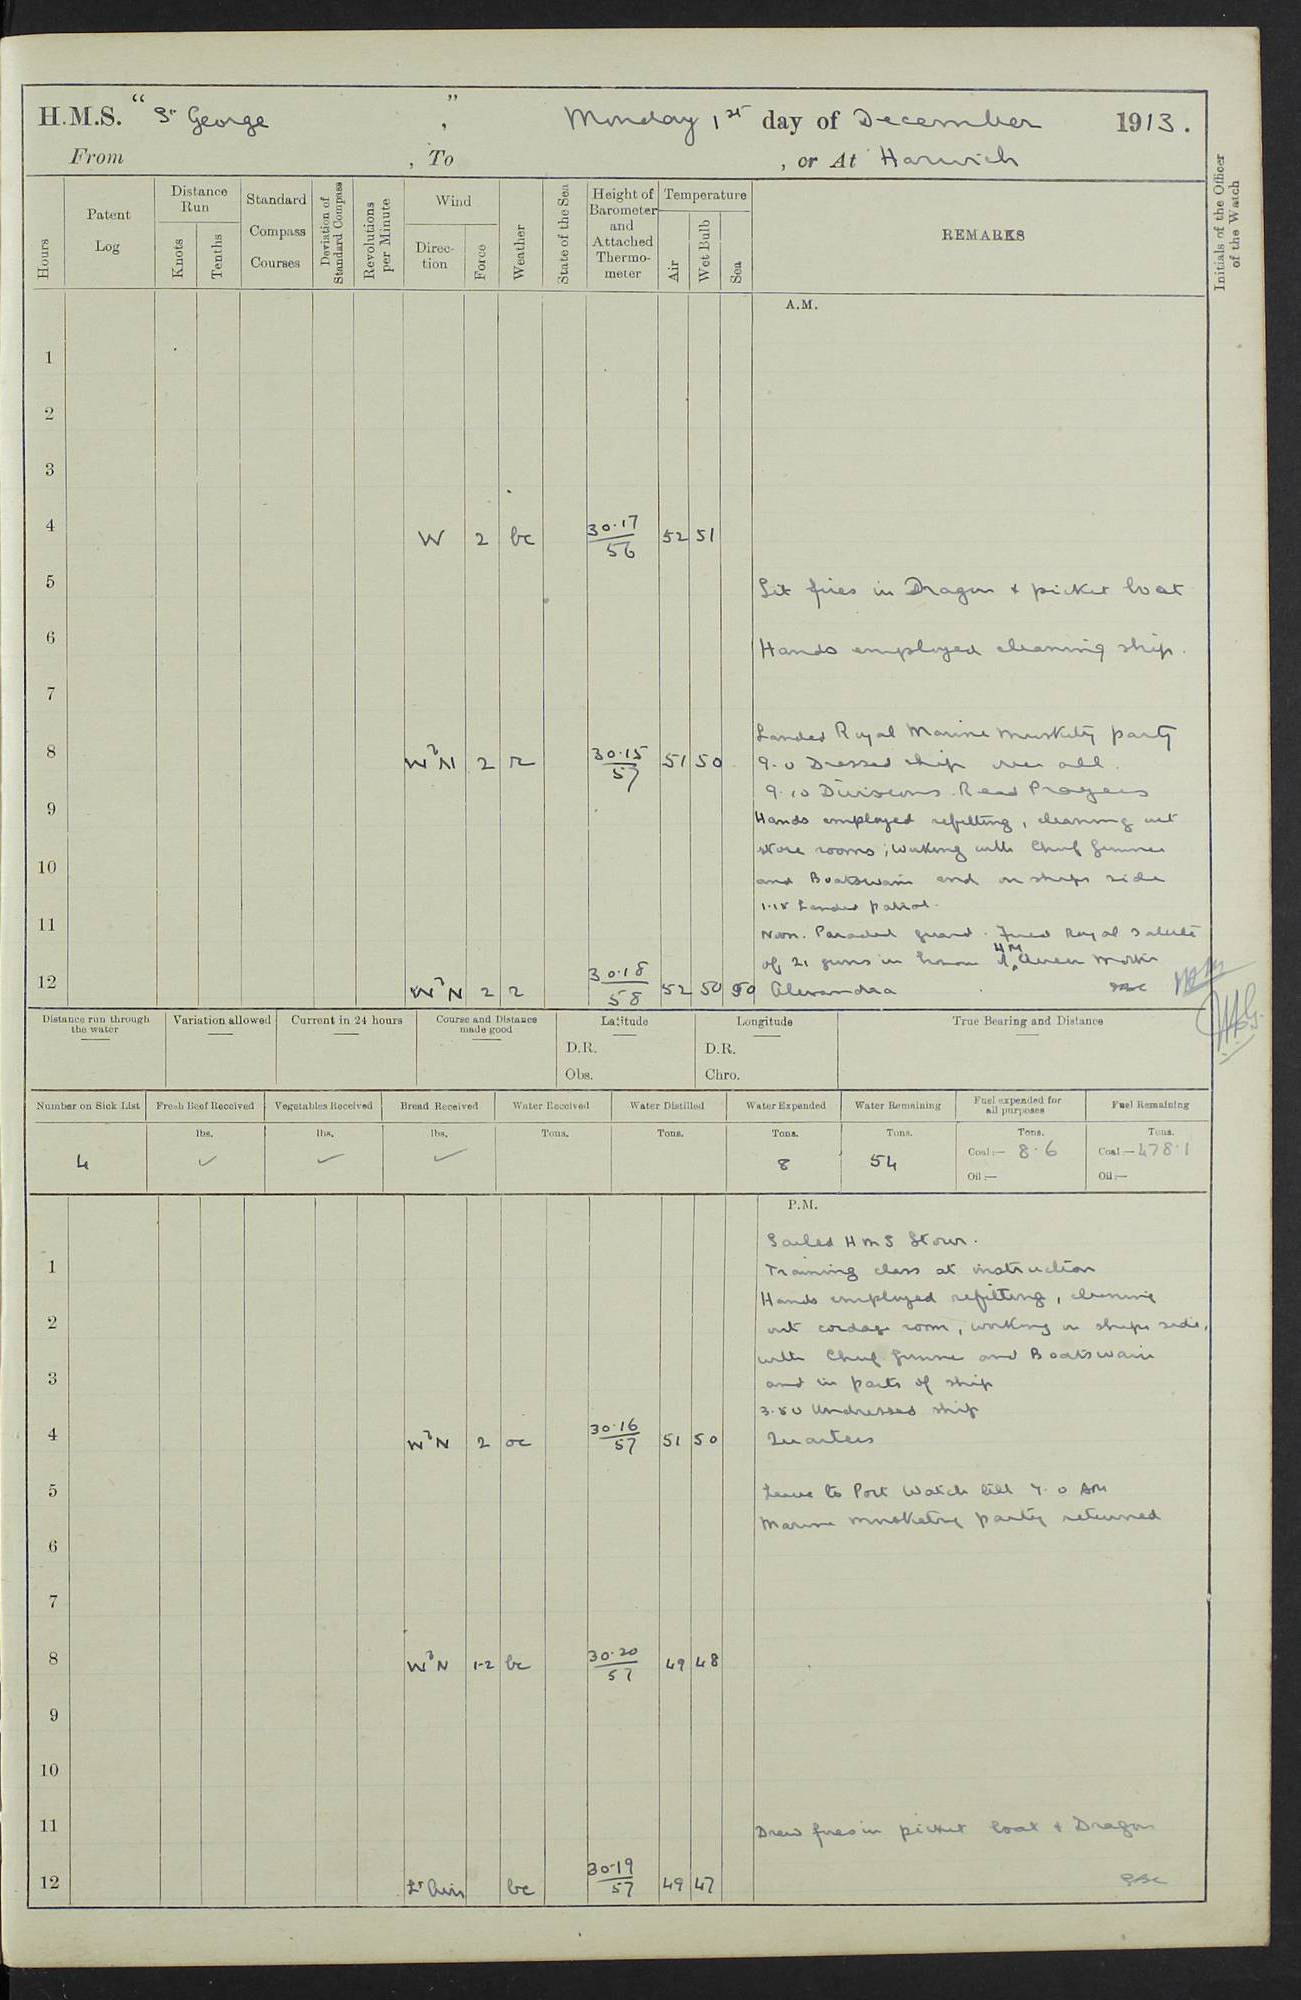 H.M.S. "St George", Monday 1st day of December 1913.
From , To , or At Harwich
Hours
Patent Log
Distance Run
Knots
Tenths
Standard Compass Courses
Deviation of Standard Compass
Revolutions per Minute
Wind
Direction
Force
Weather
State of the Sea
Height of Barometer and Attached Thermometer
Temperature
Air
Wet Bulb
Sea
REMARKS
Initials of the Officer of the Watch
A.M.
1
2
3
4 W 2 bc 30.17/56 52 51
5 Lit fires in Dragon & picket boat
6 Hands employed cleaning ship.
7
Landed Royal Marine Musketry party
8 WbN 2 r 30.15/57 51 50 9.0 Dressed ship over all.
9.10 Divisions. Read Prayers
9 Hands employed refitting, cleaning out
store rooms; working with Chief Gunner
10 and Boatswain and on ships side
1.15 Landed patrol.
11 Noon. Paraded guard. Fired Royal Salute
of 21 guns in honour of H.M. Queen Mother
12 WbN 2 r 30.18/58 52 50 50 Alexandra
Distance run through the water
Variation allowed
Current in 24 hours
Course and Distance made good
Latitude
D.R.
Obs.
Longitude
D.R.
Chro.
True Bearing and Distance
Number on Sick List
Fresh Beef Received
Vegetables Received
Bread Received
Water Received
Water Distilled
Water Expended
Water Remaining
Fuel expended for all purposes
Fuel Remaining
lbs. lbs. lbs. Tons. Tons. Tons. Tons. Tons. Tons.
4 ✓ ✓ ✓ 8 54 Coal:— 8.6 Coal:— 478.1
Oil:— Oil:—
P.M.
Sailed HMS Stour.
1 Training class at instruction
Hands employed refitting, cleaning
2 out cordage room, working on ships side,
with Chief Gunner and Boatswain
3 and in parts of ship
3.50 Undressed ship
4 WbN 2 oc 30.16/57 51 50 Quarters
5 Leave to Port Watch till 7.0 AM
Marine musketry party returned
6
7
8 WbN 1-2 bc 30.20/57 49 48
9
10
11 Drew fires in picket boat & Dragon
12 Lt Airs bc 30.19/57 49 47